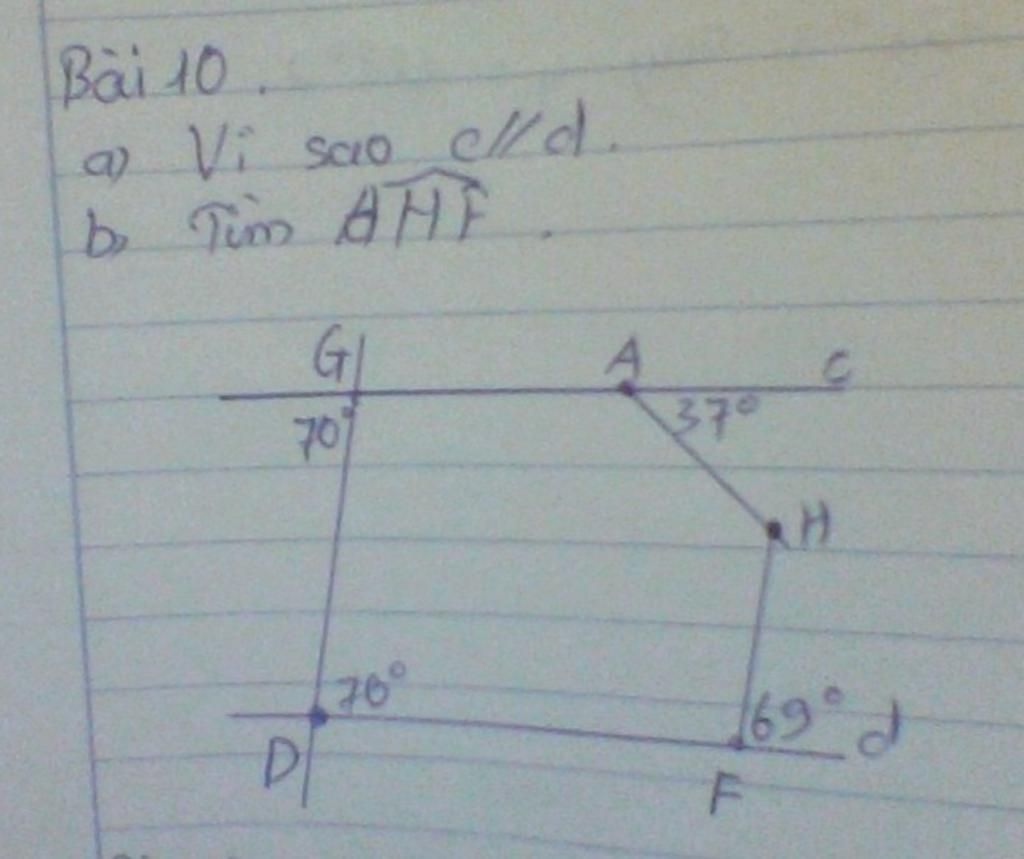 Bài 10.
a) Vì sao c//d.
b) Tìm AHF.
G A c
70° 37°
H
70°
69° d
D
F